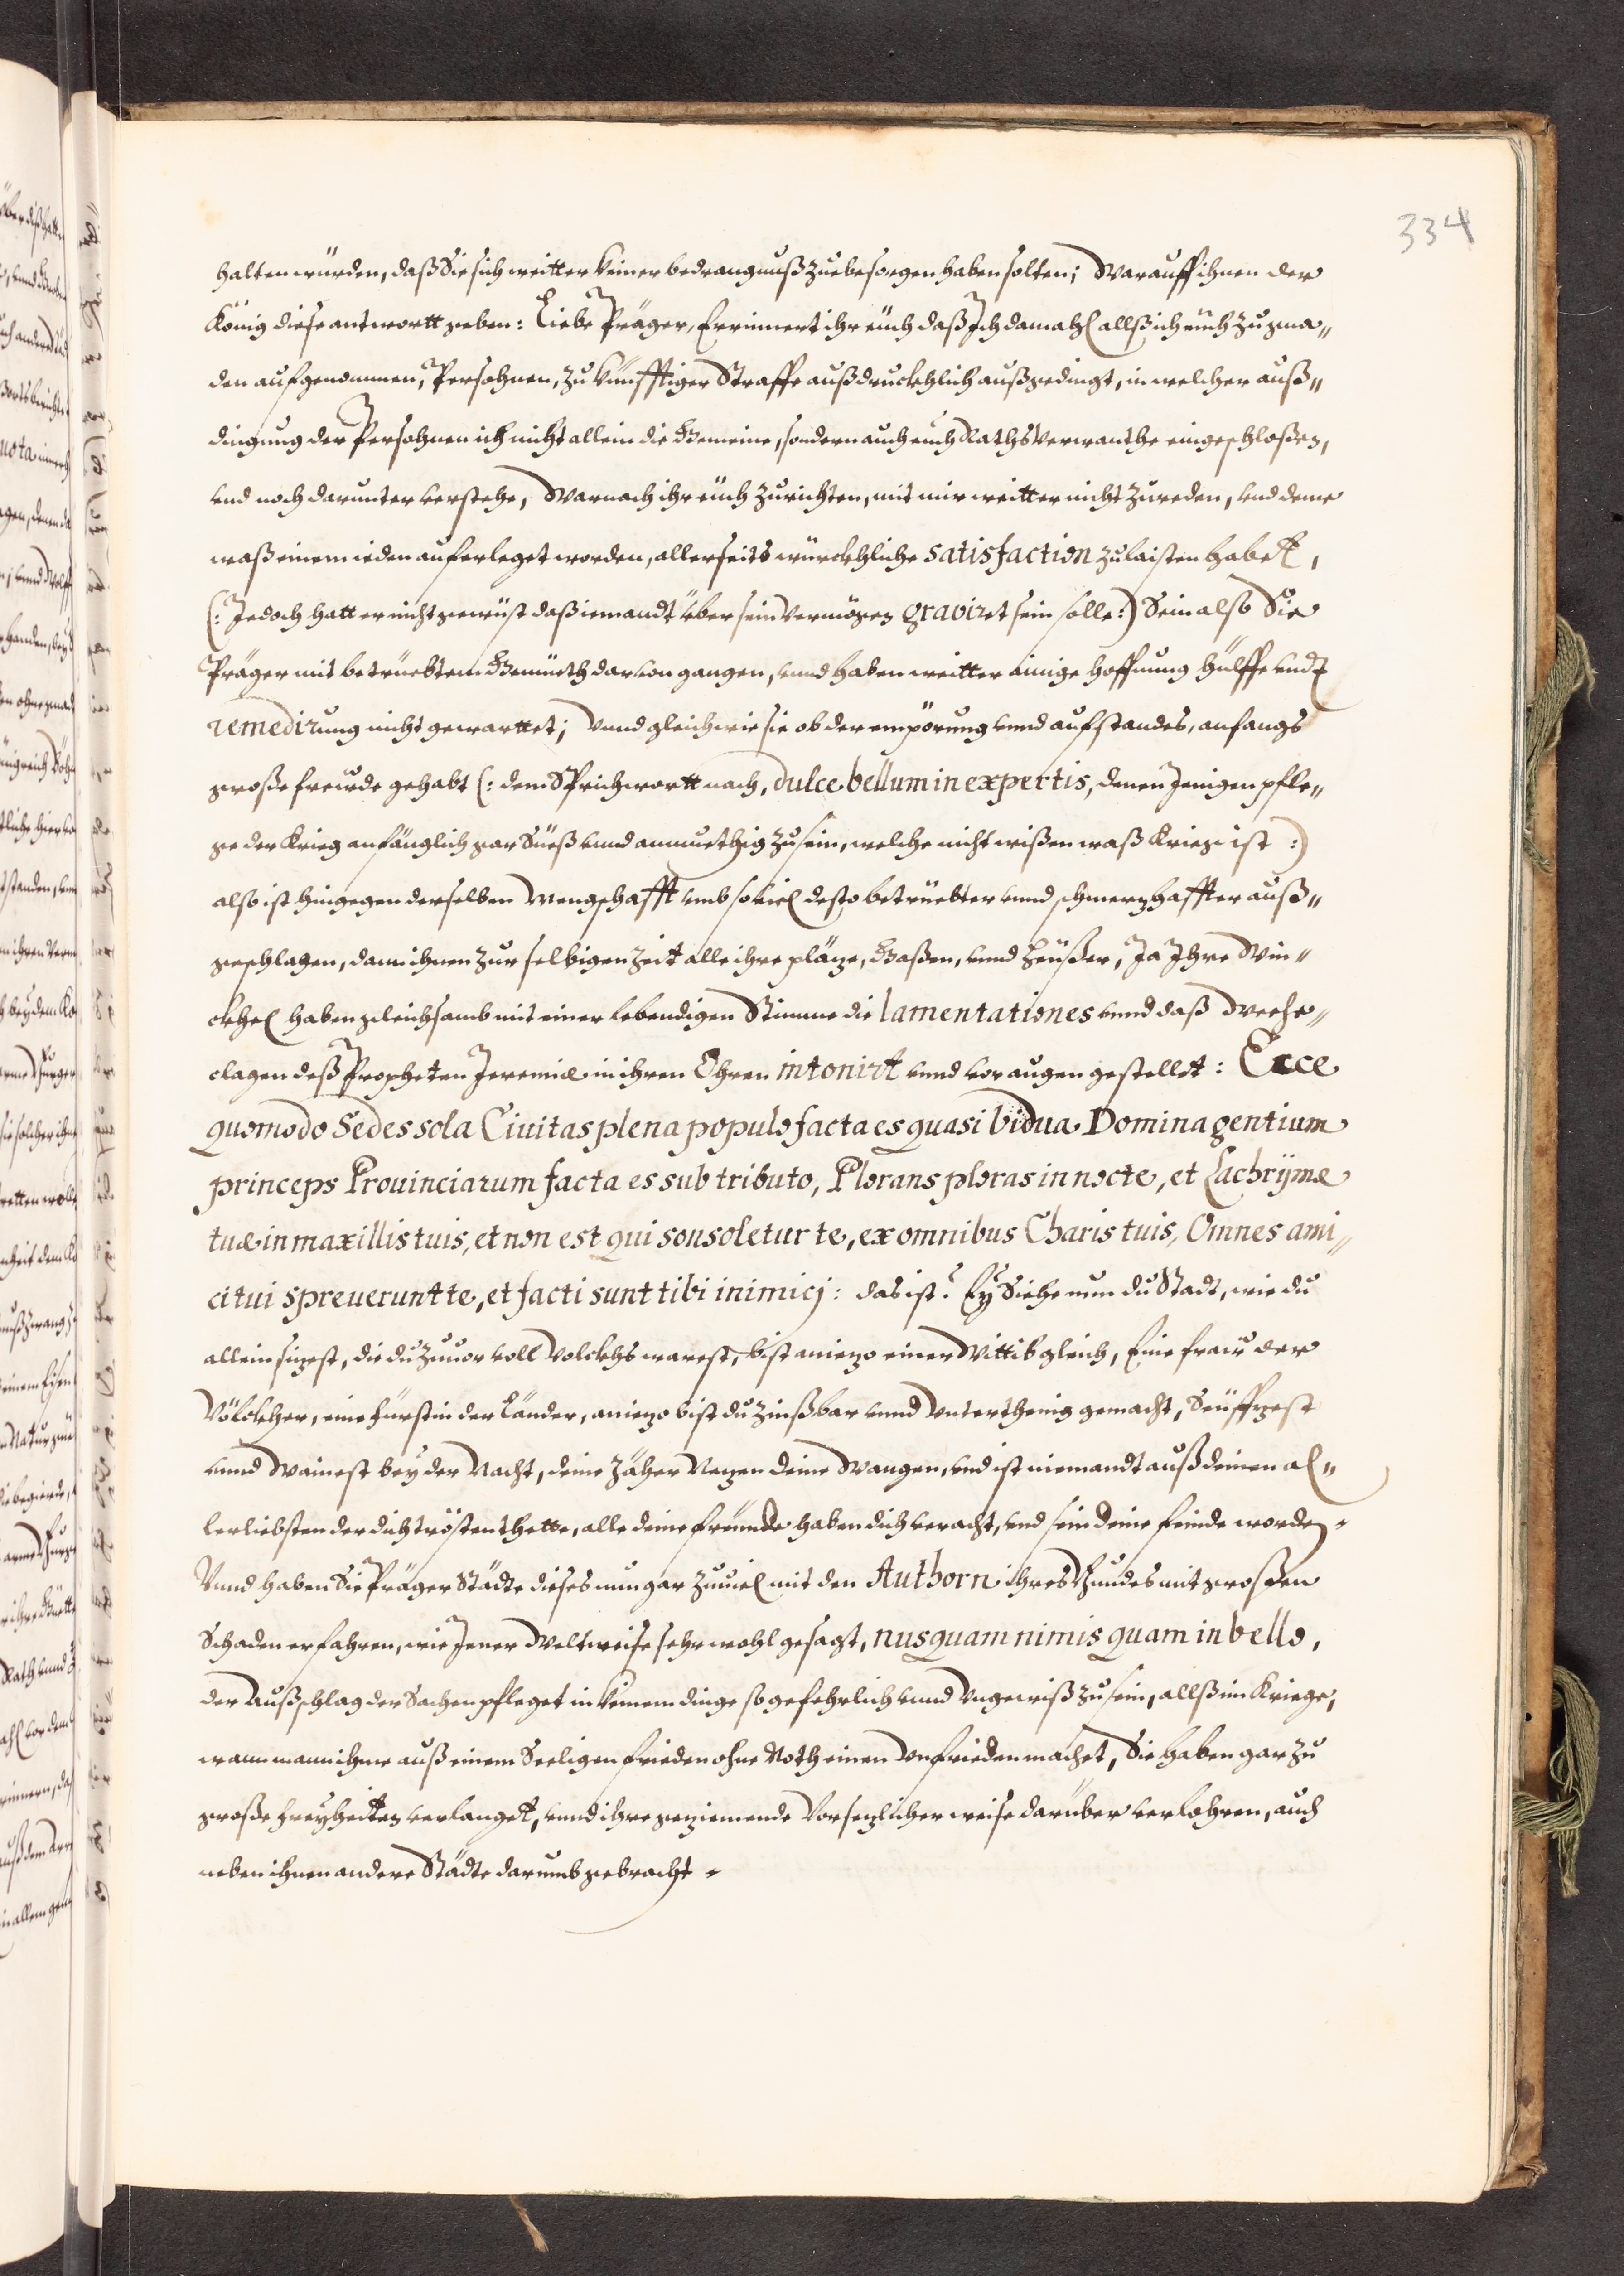 334
halten würden, daß Sie sich weitter keiner bedrangnuß zuebesorgen haben solten; Warauff ihnen der
König diese antwortt geben: Liebe Präger, Errinnert ihr eüch daß Ich damahl allß ich eüch zu gna„
den aufgenommen, Persohnen, zu künfftiger Straffe außdruckhlich außgedingt, in welcher auß„
dingung der Persohnen ich nicht allein die Gemeine, sondern auch eüch Raths Verwanthe eingeschloßen,
vnd noch darunter verstehe, Warnach ihr eüch zurichten, mit mir weitter nicht zureden, vnd deme
waß einem ieden auferleget worden, allerseits würckhliche satisfaction zulaisten habet,
(: Jedoch hatt er nicht gewüst daß iemandt über sein Vermögen gravirt sein solle :) Sein also Sie
Präger mit betrüebtem Gemüeth darvon gangen, vnnd haben weitter einige hoffnung hülffe vndt
remedirung nicht gewarttet; Vnnd gleichwie sie ob der empörung vnnd aufstandes, anfangs
große freüde gehabt (: dem Sprichwortt nach, dulce bellum in expertis, denen Jenigen pfle„
ge der Krieg anfänglich gar Süeß vnnd anmuethig zu sein, welche nicht wißen waß Krieg ist :)
also ist hingegen derselben vmb soviel desto betrüebter vnnd schmerzhaffter auß„
geschlagen, dann ihnen zur selbigen Zeit alle ihre pläze, Gaßen, vnnd heüßer, Ja Ihre Win„
ckhel haben gleichsamb mit einer lebendigen Stimme die lamentationes vnnd daß Weehe„
clagen deß Propheten Jeremiæ in ihren Ohren intonirt vnnd vor augen gestellet: Ecce
quomodo Sedes sola Ciuitas plena populo facta es quasi Vidua Domina gentium
princeps Prouinciarum facta es sub tributo, Plorans ploras in nocte, et Lachrÿmæ
tuæ in maxillis tuis, et non est qui sonsoletur te, ex omnibus Charis tuis, Omnes ami„
ci tui spreuerunt te, et facti sunt tibi inimicj: das ist: Eÿ Siehe nun du Stadt, wie du
allein sizest, die du zuuor voll Volckhs warest, bist aniezo einer Wittib gleich, Eine fraw der
Völckher, eine fürstin der Länder, aniezo bist du Zinßbar vnnd Vnterthenig gemacht, Seüffzest
vnnd Wainest beÿ der Nacht, deine Zäher Nezen deine Wangen, vnd ist niemandt auß deinen al„
lerliebsten der dich trösten thette, alle deine freunde haben dich veracht, vnd sein deine feinde worden.
Vnnd haben Sie Präger Städte dieses nun gar zuuiel mit den Authorn ihres Bundes mit großen
Schaden erfahren, wie Jener Weltweise sehr wohl gesagt, nusquam nimis quam in bello,
der Außschlag der Sachen pfleget in keinem dinge so gefehrlich vnnd Vngewiß zu sein, allß im Kriege,
wann mann ihme auß einem Seeligen frieden ohne Noth einen Vnfrieden machet, Sie haben gar zu
große freÿheiten verlanget, vnnd ihre geziemende Vorsezlicher weise darüber verlohren, auch
neben ihnen andere Städte darumb gebracht.